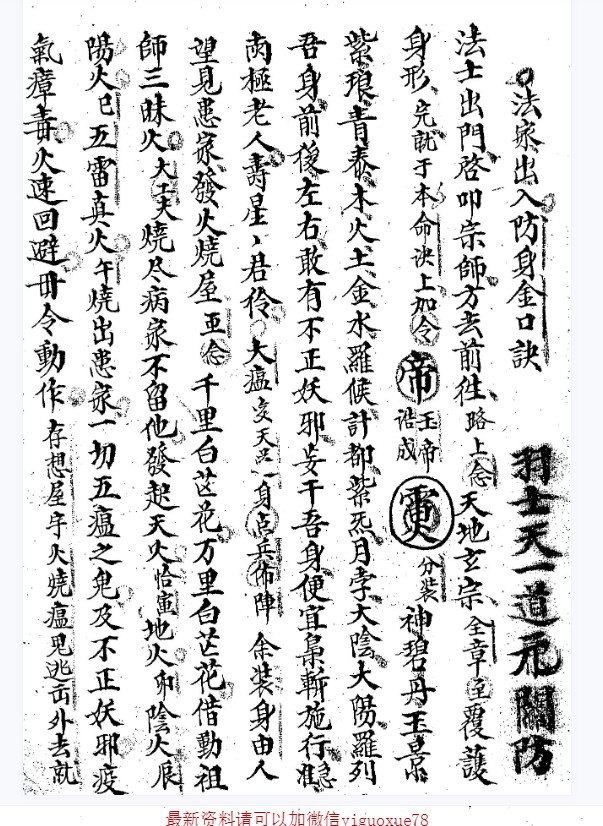 法家出入防身金口訣
羽士天一道元關防
法士出門啓叩宗師方去前往路上念天地玄宗全章至覆護
身形完就于本命決上加令帝玉帝誥成電火分裝神碧丹玉景
紫琅青泰木火土金水羅候計都紫炁月孛太陰太陽羅列
吾身前後左右敢有不正妖邪妄干吾身便宜梟斬施行准
南極老人壽星君伶大瘟天一身点兵佈陣余裝身由人
望見患家發火燒屋亟念千里白茫花万里白茫花借動祖
師三昧火燒尽病家不留他發起天火恰寅地火卯陰火辰
陽火巳五雷真火午燒出患家一切五瘟之鬼及不正妖邪疫
氣瘴毒火速回避毋令動作存想屋宇火燒瘟見逃出外去就
最新资料请可以加微信yiguoxue78